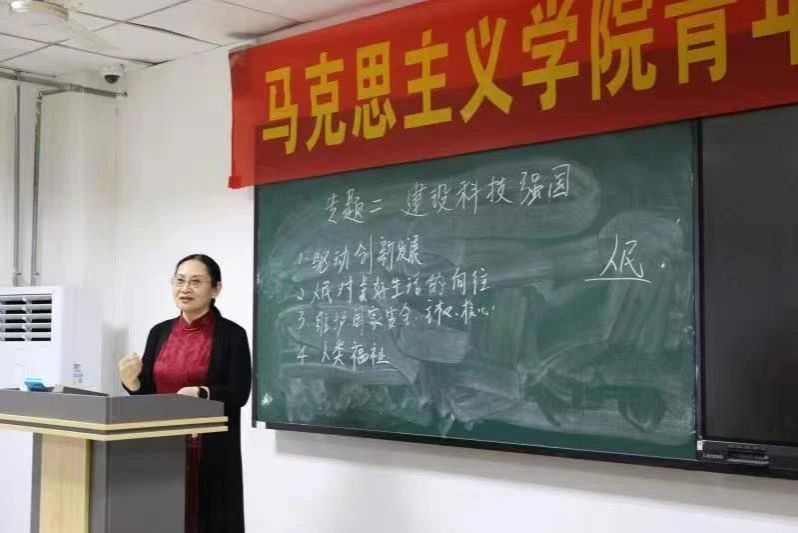 马克思主义学院青年
专题二 建设科技强国
1.驱动创新发展
2.人民对美好生活的向往
3.维护国家安全、主权、核心
4.人类福祉
人民.
Lenovo